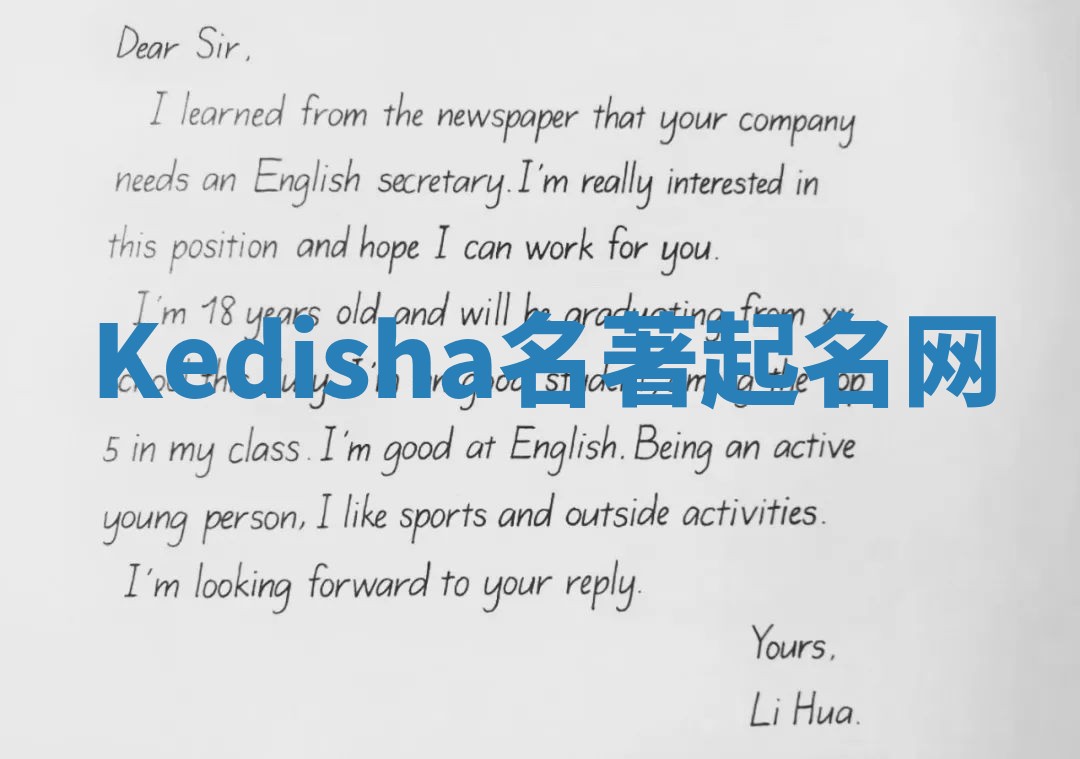 Dear Sir,
I learned from the newspaper that your company
needs an English secretary. I'm really interested in
this position and hope I can work for you.
I'm 18 years old and will be graduating from xx
Kedisha名著起名网
this July. I'm good among the top
5 in my class. I'm good at English. Being an active
young person, I like sports and outside activities.
I'm looking forward to your reply.
Yours,
Li Hua.